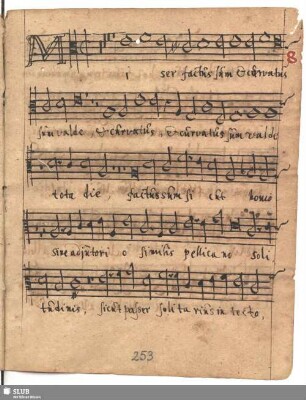 8
M i ser factus sum & curvatus
sum valde, & curvatus, & curvatus sum valde
tota die, factus sum si cut homo
sine adjutori o similis pellicano soli
tudinis, sicut passer solitarius in tecto,
253
SLUB